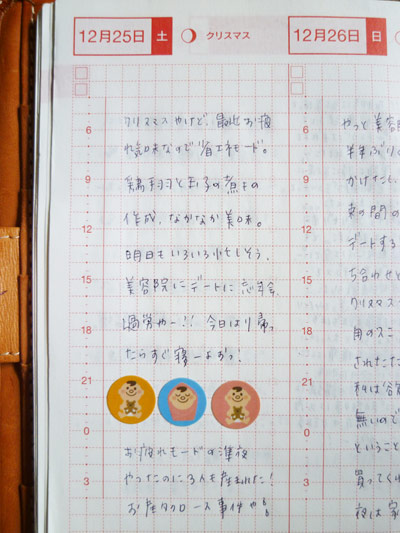 12月25日 土 クリスマス
12月26日 日
クリスマスやけど、最近お疲
れ気味なので省エネモード。
鶏手羽と玉子の煮もの
作成。なかなか美味。
明日もいろいろ忙しそう。
美容院にデートに忘年会
過労やー!! 今日はり帰っ
たらすぐ寝ーよおっ!
お疲れモードの準夜
やったのに3人も産まれた!
お産タクロース事件や!!
やっと美容
半年ぶりの
かけたこ
束の間の
デートする
ち合わせと
クリスマス
用のスニ
されたた
無いので
ということ
買ってくれ
夜は家
6
9
12
15
18
21
0
3
6
9
12
15
18
21
0
3